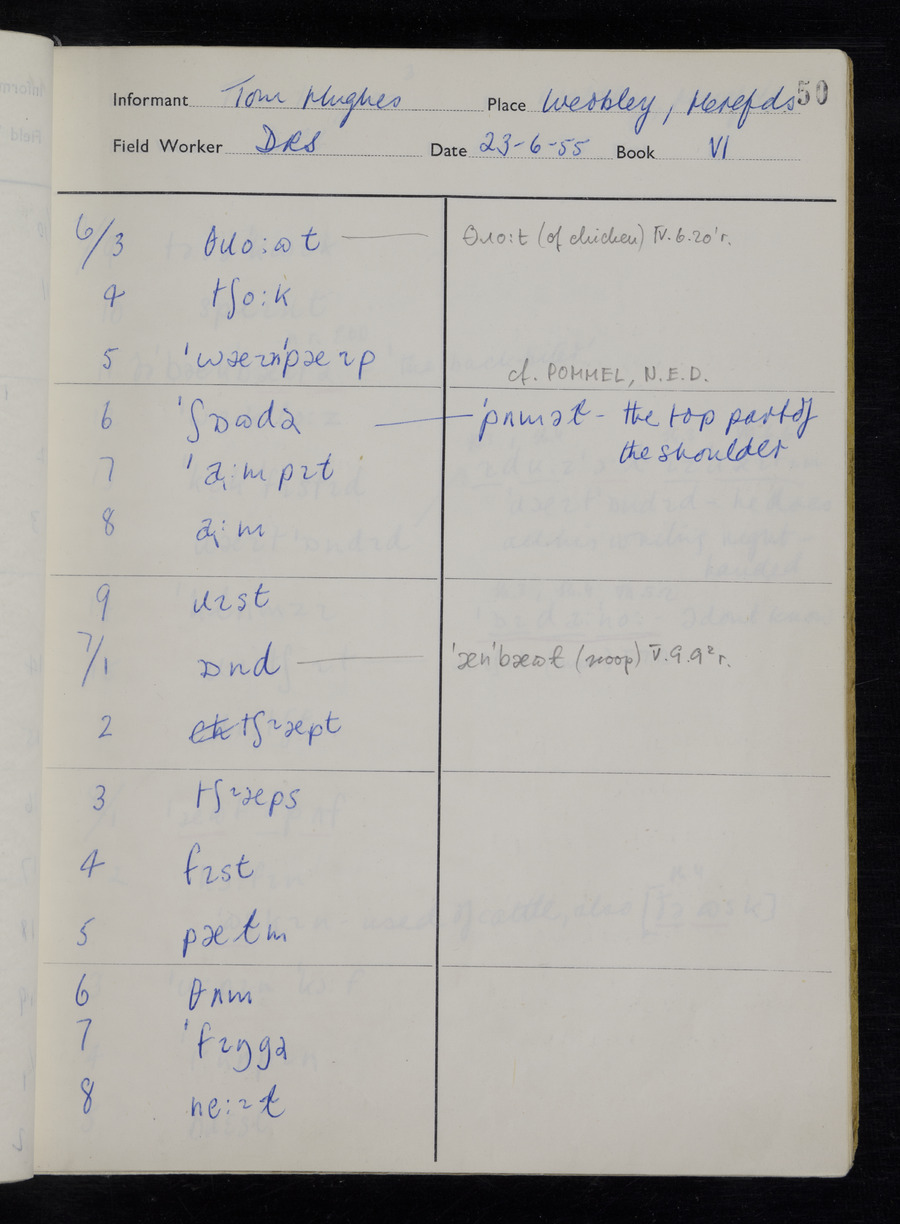 Informant Tom Hughes Place Weobley, Herefds 50
Field Worker DRS Date 23-6-55 Book VI
6/3 θɹo:ʊt θɹo:t (of chicken) IV.6.20'r.
4 tʃo:k
5 'wæɪn'pæɪp
cf. POMMEL, N.E.D.
6 'ʃɒʊdə 'pʌmət - the top part of
the shoulder
7
8
9 ɹɪst
7/1 ɒnd 'æn'bæʊt V.9.9²r.
2 tʃæpt
3 tʃæps
4 fɪst
5 pætm
6 θʌm
7 'fɪŋgə
8 ne:ɪɫ